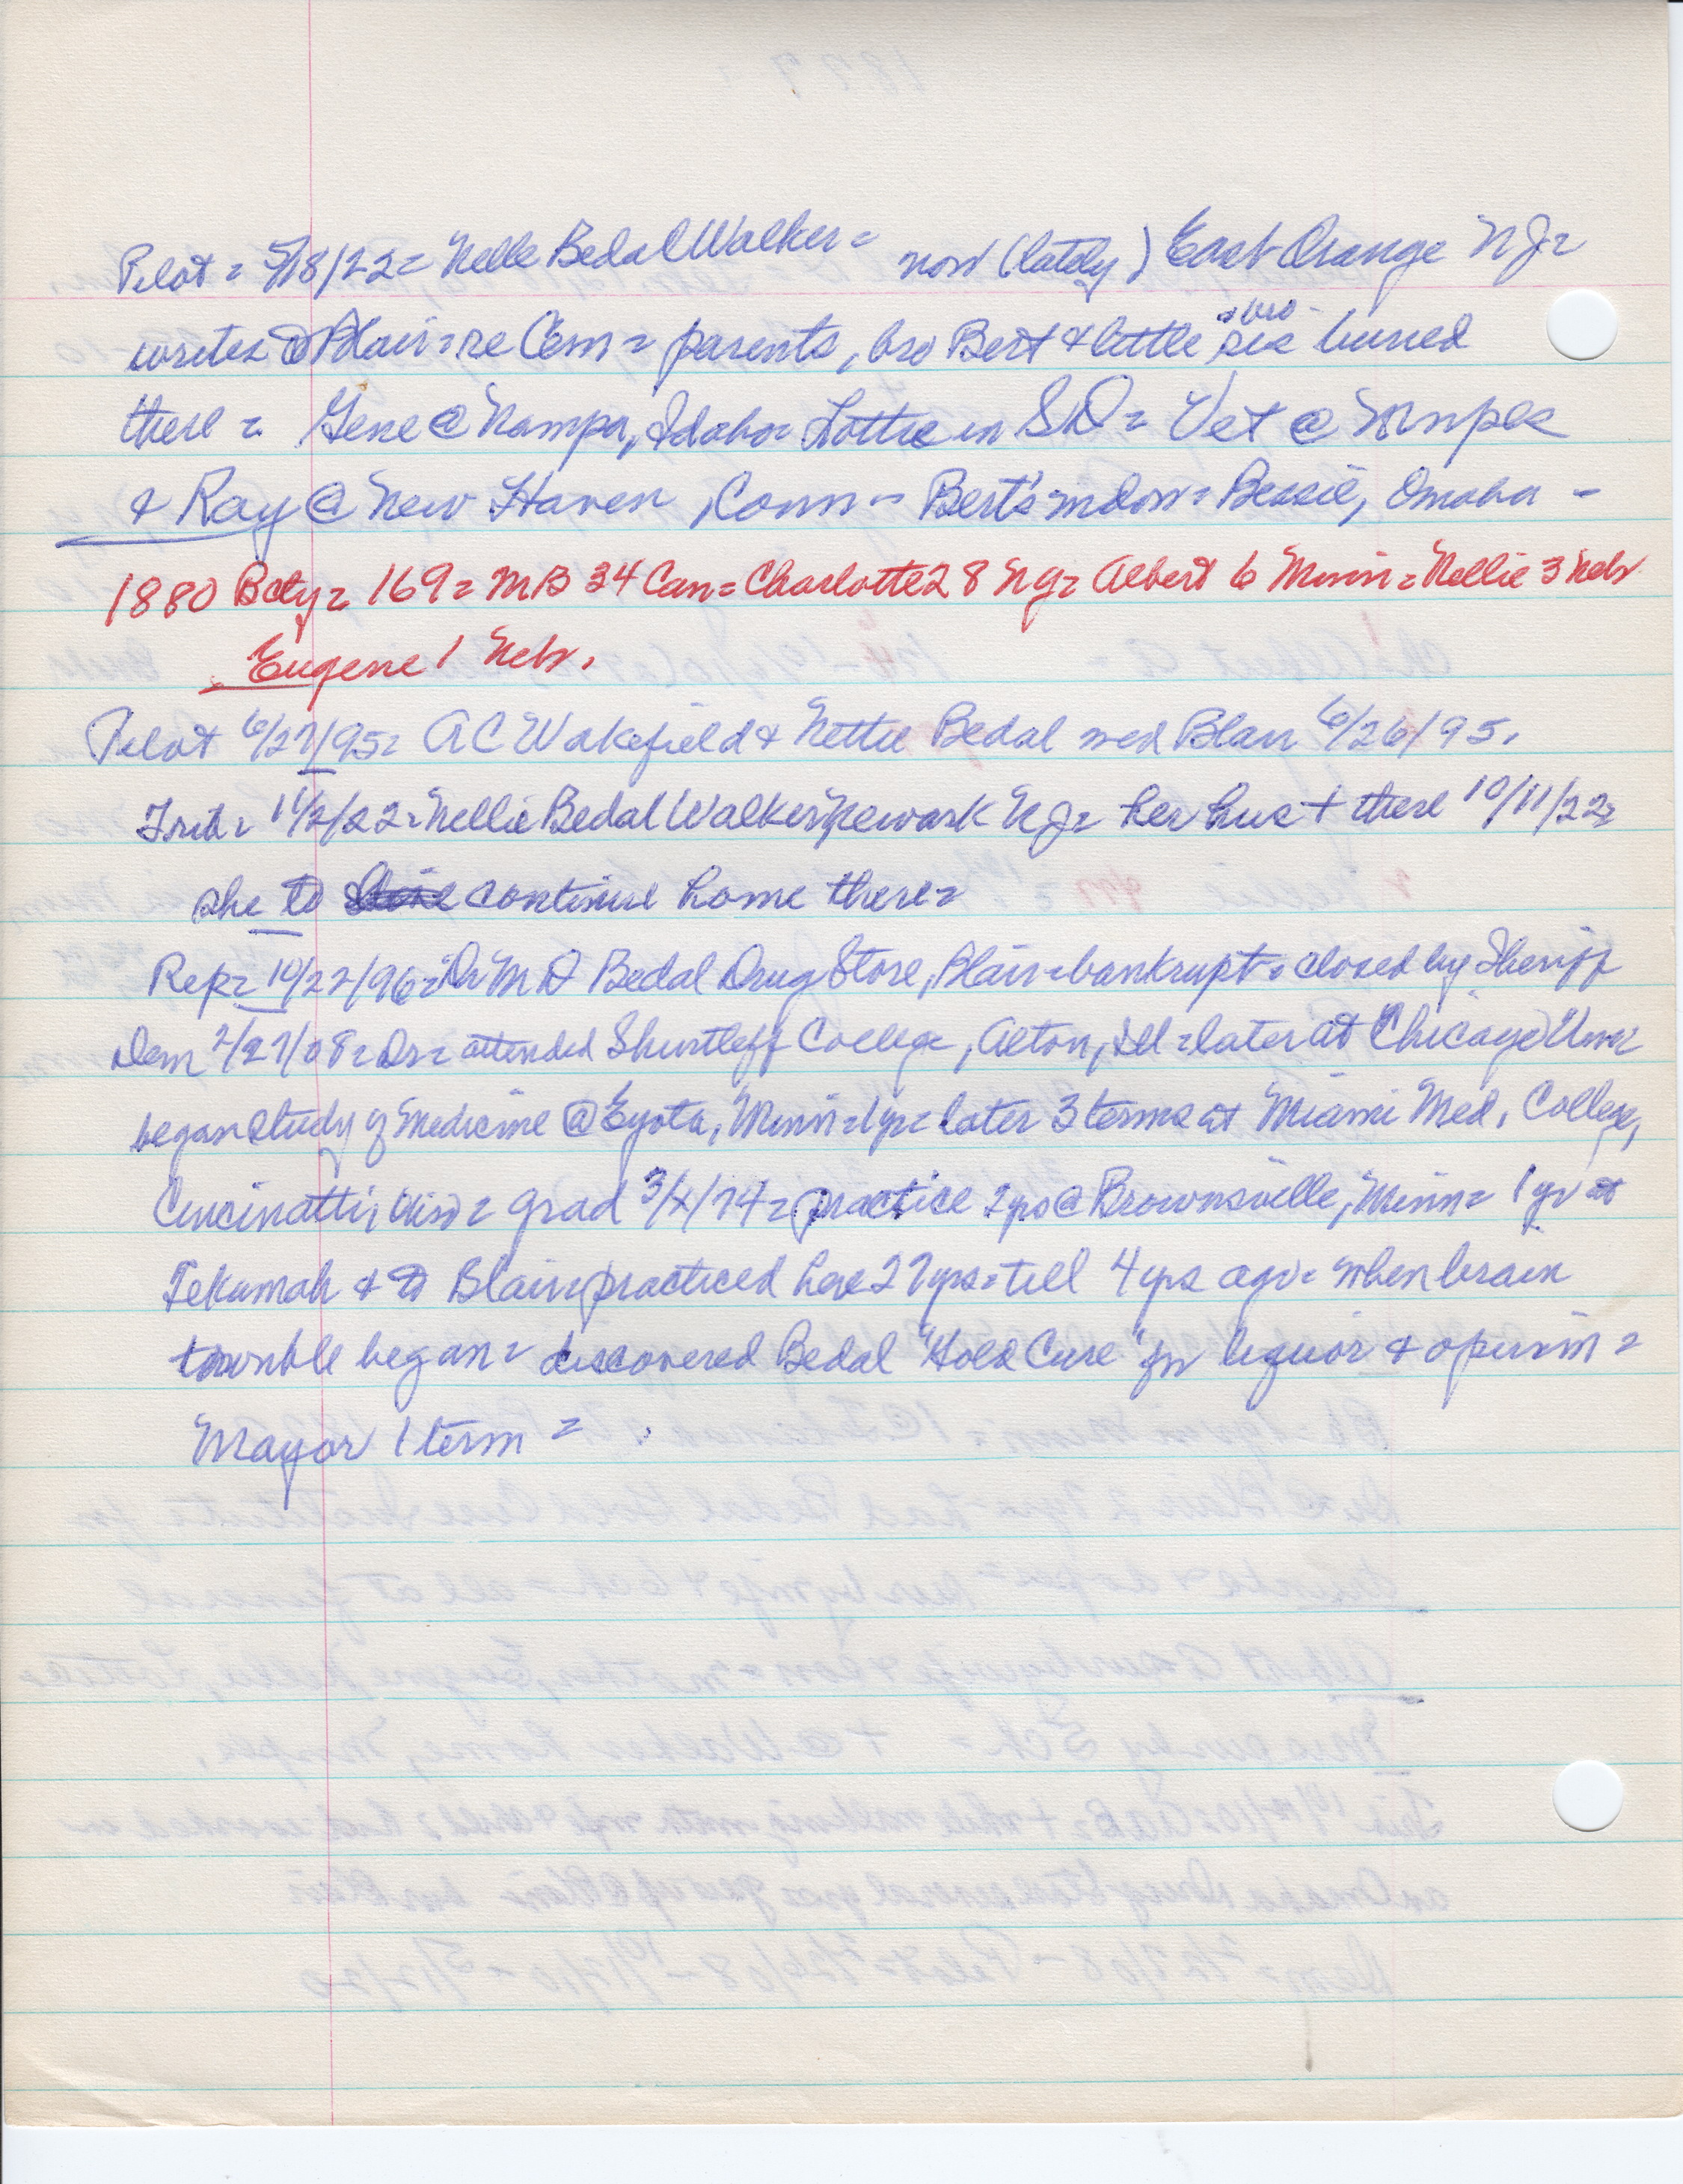 Pilot = 5/18/22 = Nelle Bedal Walker = now (lately) East Orange NJ =
writes @ Blair = re Cem = parents, bro Bert & little sis & bro buried
there = Gene @ Nampa, Idaho = Lottie in SD = Vet @ Mnpls
& Ray @ New Haven, Conn = Bert's widow = Bessie, Omaha -
1880 Bcty = 169 = MB 34 Can = Charlotte 28 NY = Albert 6 Minn = Nellie 3 Nebr
Eugene 1 Nebr.
Pilot 6/27/95 = AC Wakefield & Nettie Bedal wed Blair 6/26/95.
Trib = 11/2/22 = Nellie Bedal Walker Newark NJ = her hus + there 10/11/22 =
she to continue home there =
Rep = 10/22/96 = Dr MD Bedal Drug Store, Blair = bankrupt = closed by Sheriff
Dem 2/27/08 = Dr = attended Shurtleff College, Alton, Ill = later at Chicago Univ
began study of Medicine @ Eyota, Minn = 1 yr = later 3 terms at Miami Med. College,
Cincinatti, Ohio = grad 3/x/74 = practice 2 yrs @ Brownsville, Minn = 1 yr at
Tekamah & to Blair = practiced here 27 yrs = till 4 yrs ago = when brain
trouble began = discovered Bedal "Gold Cure" for liquor & opium =
Mayor 1 term =